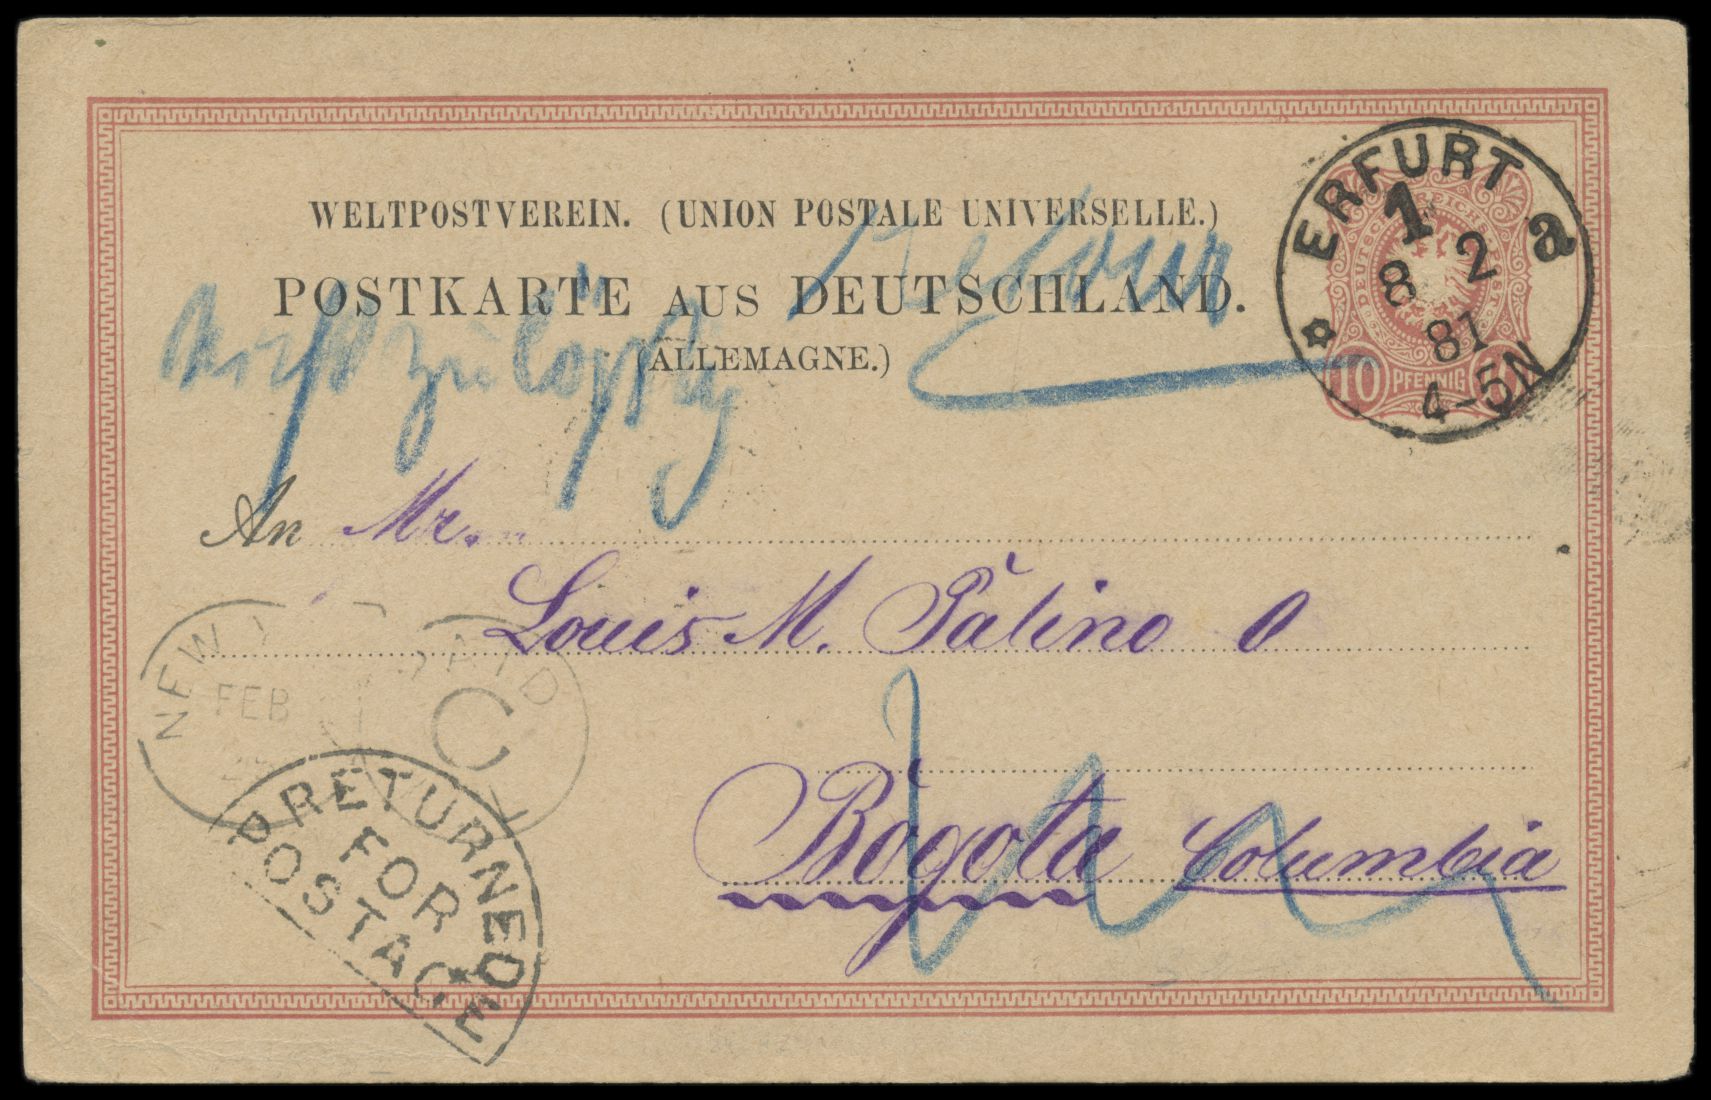 WELTPOSTVEREIN. (UNION POSTALE UNIVERSELLE.)
POSTKARTE AUS DEUTSCHLAND.
(ALLEMAGNE.)
Retour
nicht zulässig
ERFURT
1 a
8 2
81
4-5N
DEUTSCHE REICHSPOST
10 PFENNIG 10
An Mr.
Louis M. Patino O
Bogota Columbia
NEW
FEB
PAID
C
RETURNED
FOR
POSTAGE